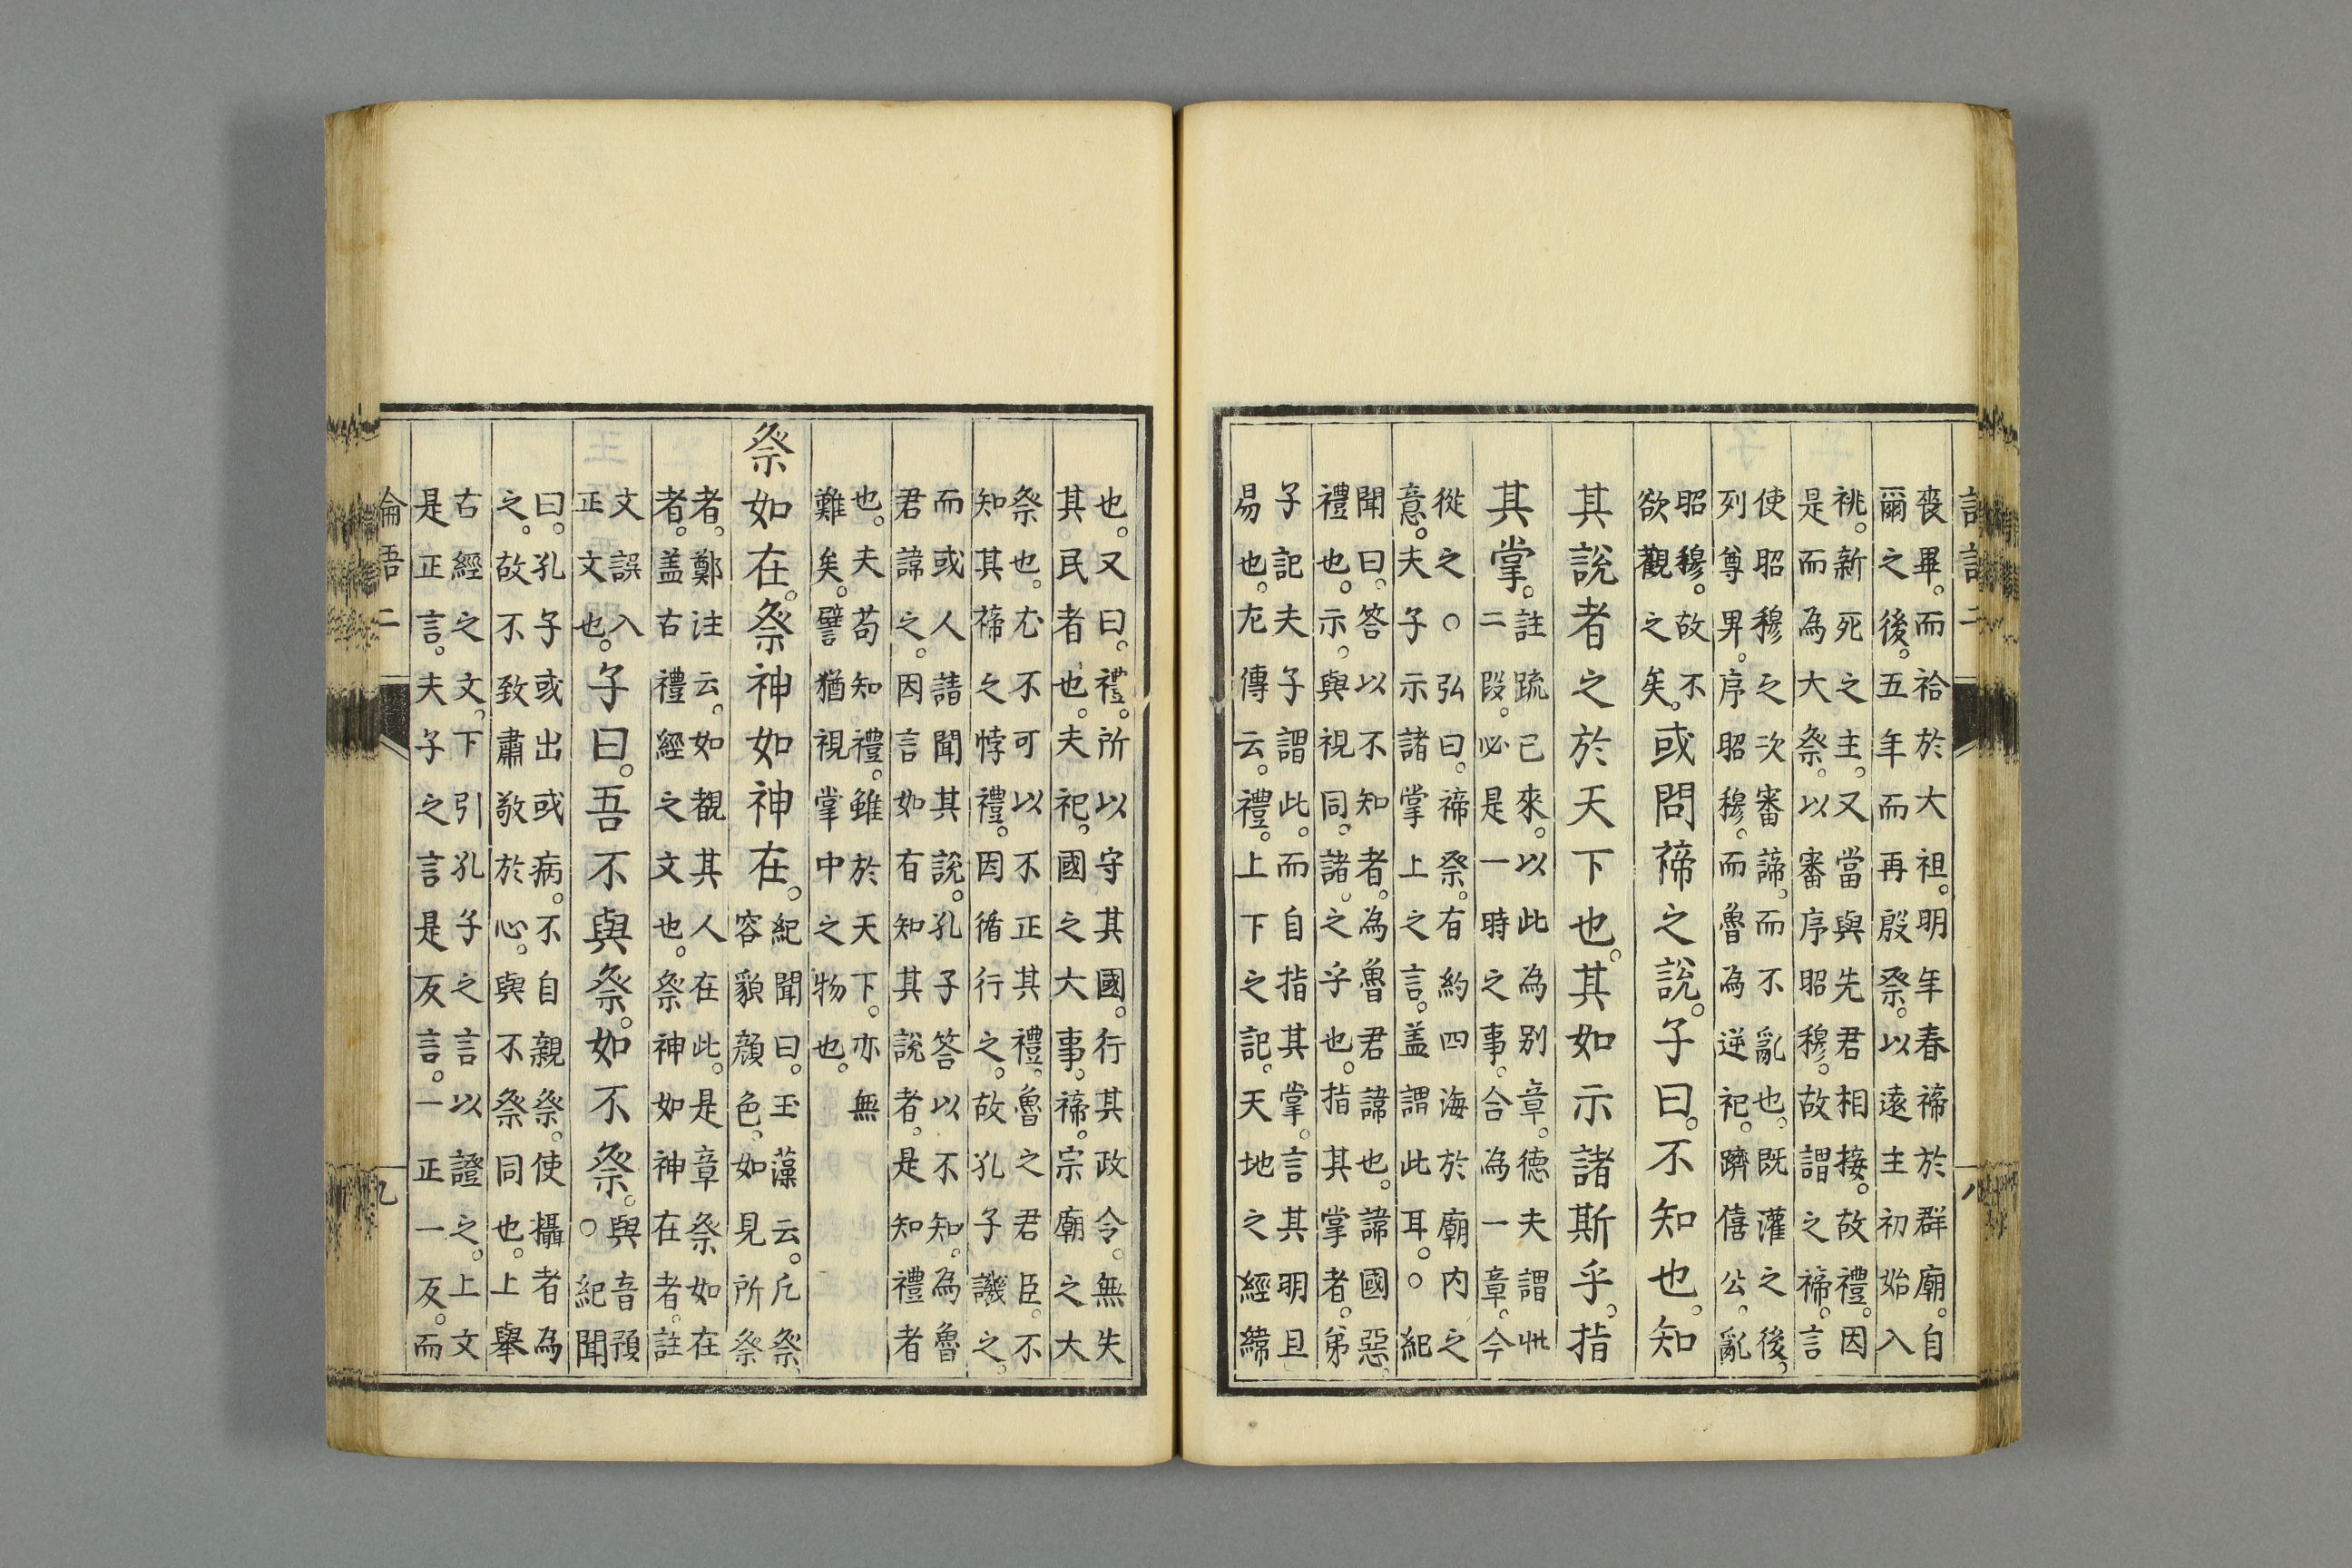 喪畢。而祫於大祖。明年春禘於群廟。自
爾之後。五年而再殷祭。以遠主初始入
祧。新死之主。又當與先君相接。故禮。因
是而為大祭。以審序昭穆。故謂之禘。言
使昭穆之次審諦。而不亂也。既灌之後。
列尊畀。序昭穆。而魯為逆祀。躋僖公。亂
昭穆。故不
欲觀之矣。或問禘之說。子曰。不知也。知
其說者之於天下也。其如示諸斯乎。指
其掌。註疏已來。以此為別章。德夫謂此
二段。必是一時之事。合為一章。今
從之。○弘曰。禘祭。有約四海於廟內之
意。夫子示諸掌上之言。盖謂此耳。○紀
聞曰。答以不知者。為魯君諱也。諱國惡。
禮也。示。與視同。諸。之乎也。指其掌者。弟
子記夫子謂此。而自指其掌。言其明且
易也。左傳云。禮。上下之記。天地之經緯
也。又曰。禮。所以守其國。行其政令。無失
其民者也。夫祀。國之大事。禘。宗廟之大
祭也。尤不可以不正其禮。魯之君臣。不
知其禘之悖禮。因循行之。故孔子譏之。
而或人請聞其說。孔子答以不知。為魯
君諱之。因言如有知其說者。是知禮者
也。夫苟知禮。雖於天下。亦無
難矣。譬猶視掌中之物也。
祭如在。祭神如神在。紀聞曰。玉藻云。凡祭
容貌顏色。如見所祭
者。鄭注云。如覩其人在此。是章祭如在
者。盖古禮經之文也。祭神如神在者。註
文誤入
正文也。子曰。吾不與祭。如不祭。與音預
○紀聞
曰。孔子或出或病。不自親祭。使攝者為
之。故不致肅敬於心。與不祭同也。上舉
古經之文。下引孔子之言以證之。上文
是正言。夫子之言是反言。一正一反。而